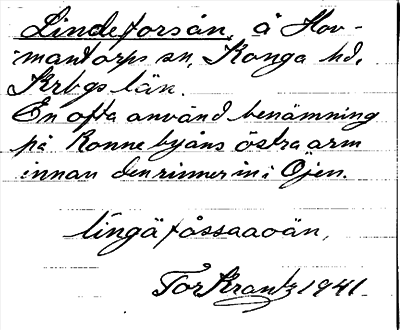 Lindeforsån, å Hov-
mantorps sn, Konga hd,
Krbgs län.
En ofta använd benämning
på Ronnebyåns östra arm
innan den rinner in i Öjen.
Tor Krantz 1941.